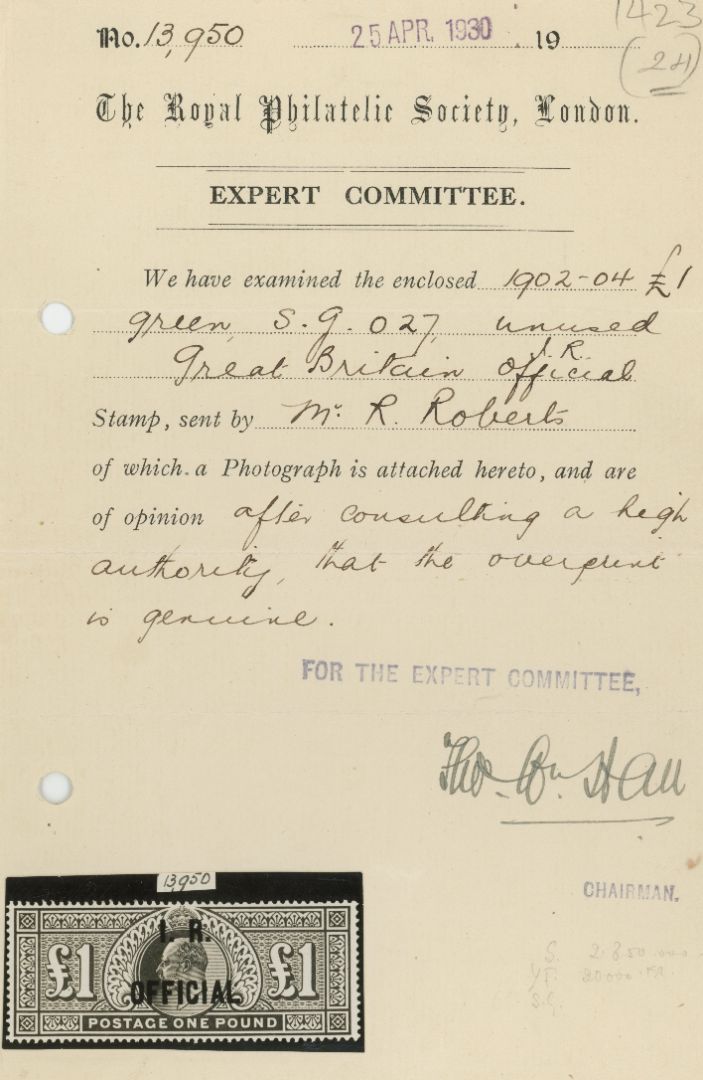 1423
No. 13,950 25 APR. 1930 19
(24)
The Royal Philatelic Society, London.
EXPERT COMMITTEE.
We have examined the enclosed 1902-04 £1
green, S.G. 027, unused
I.R.
Great Britain official
Stamp, sent by Mr. R. Roberts
of which a Photograph is attached hereto, and are
of opinion after consulting a high
authority, that the overprint
is genuine.
FOR THE EXPERT COMMITTEE,
Tho. Wm Hall
CHAIRMAN.
13,950
I. R.
£1 £1
OFFICIAL
POSTAGE ONE POUND
S. 2.850.000
Y.T. 20000
S.G.